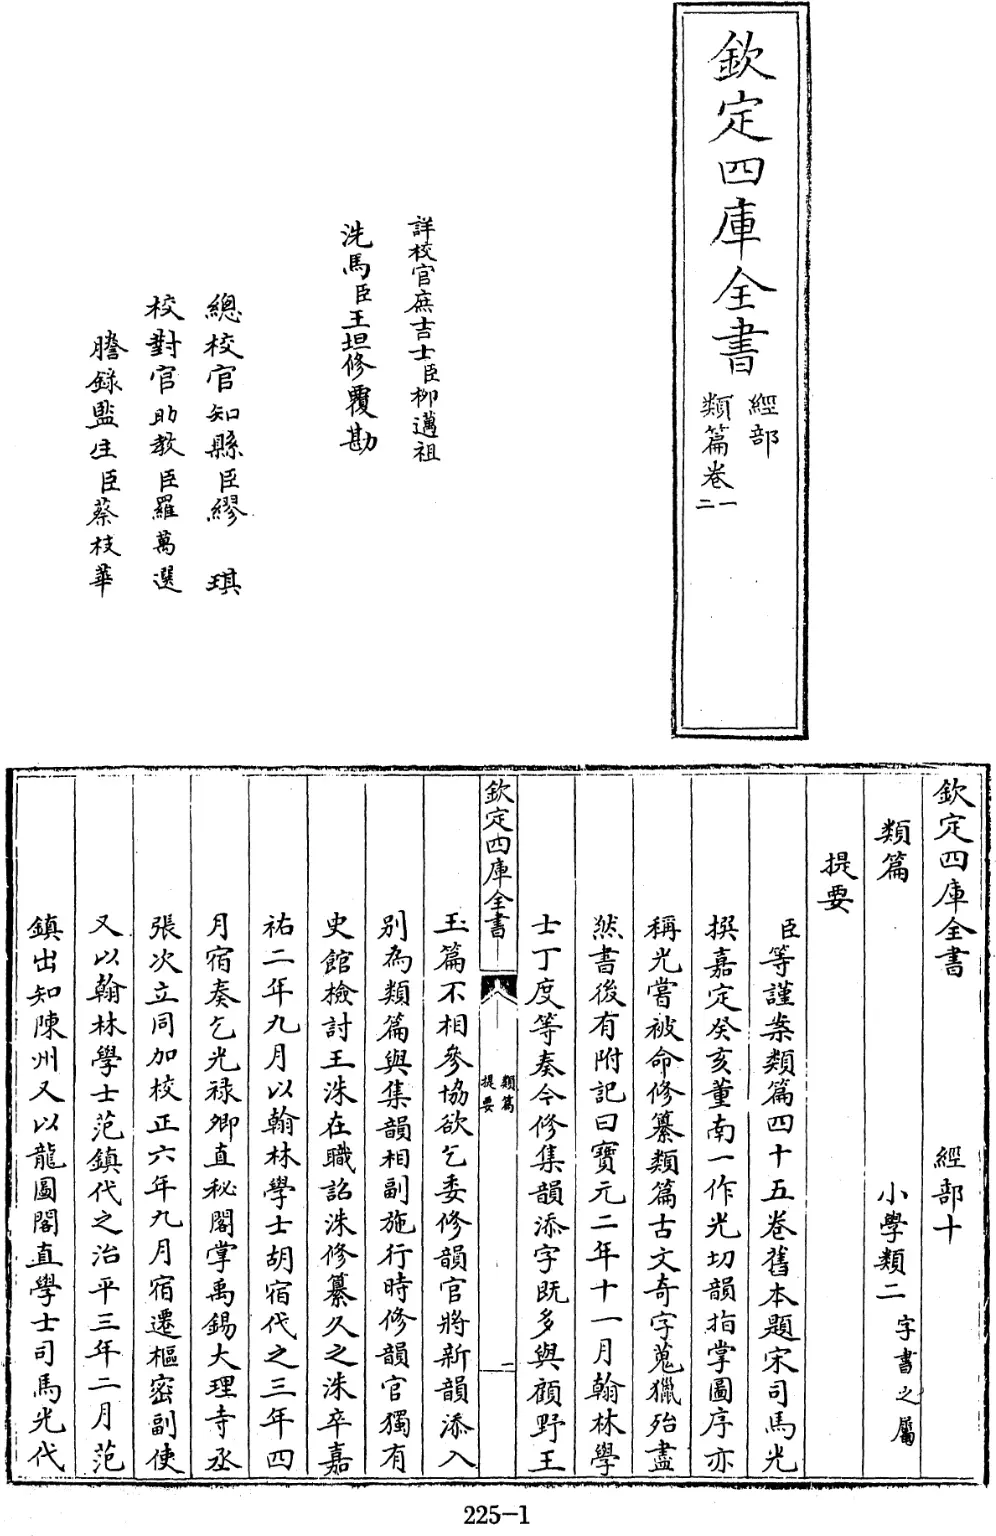 欽定四庫全書
經部
類篇卷一
二
詳校官庶吉士臣柳邁祖
洗馬臣王坦修覆勘
總校官知縣臣繆　琪
校對官助教臣羅萬選
謄錄監生臣蔡枝華
欽定四庫全書　經部十
類篇　小學類二字書之屬
提要
臣等謹案類篇四十五卷舊本題宋司馬光
撰嘉定癸亥董南一作光切韻指掌圖序亦
稱光嘗被命修纂類篇古文奇字蒐獵殆盡
然書後有附記曰寶元二年十一月翰林學
士丁度等奏今修集韻添字既多與顧野王
欽定四庫全書
類篇
提要
一
玉篇不相參協欲乞委修韻官將新韻添入
別為類篇與集韻相副施行時修韻官獨有
史館檢討王洙在職詔洙修纂久之洙卒嘉
祐二年九月以翰林學士胡宿代之三年四
月宿奏乞光祿卿直秘閣掌禹錫大理寺丞
張次立同加校正六年九月宿遷樞密副使
又以翰林學士范鎮代之治平三年二月范
鎮出知陳州又以龍圖閣直學士司馬光代
225-1